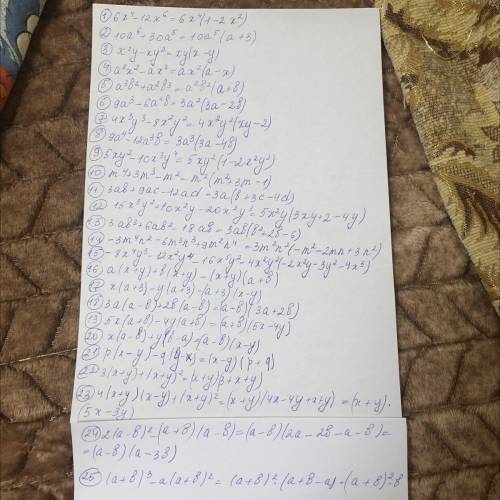 ① 6x⁴-12x⁶=6x⁴(1-2x²)
② 10a⁶+30a⁵=10a⁵(a+3)
③ x²y-xy²=xy(x-y)
④ a²x²-ax³=ax²(a-x)
⑤ a³b²+a²b³=a²b²(a+b)
⑥ 9a³-6a²b=3a²(3a-2b)
⑦ 4x³y³-8x²y²=4x²y²(xy-2)
⑧ 9a⁴-12a³b=3a³(3a-4b)
⑨ 5xy²-10x³y⁴=5xy²(1-2x²y²)
⑩ m⁴+3m³-m²=m²(m²+3m-1)
11 3ab+9ac-12ad=3a(b+3c-4d)
12 15x³y²+10x²y-20x²y²=5x²y(3xy+2-4y)
13 3ab³+6ab²-18ab=3ab(b²+2b-6)
14 -3m⁴n²-6m³n³+9m²n⁴=3m²n²(-m²-2mn+3n²)
15 -8x⁴y³-12x²y⁴-16x³y²=4x²y²(-2x²y-3y²-4x³)
16 a(x+y)+b(x+y)=(x+y)(a+b)
17 x(a+3)-y(a+3)=(a+3)(x-y)
18 3a(a-b)+2b(a-b)=(a-b)(3a+2b)
19 5x(a+b)-4y(a+b)=(a+b)(5x-4y)
20 x(a-b)+y(b-a)=(a-b)(x-y)
21 p(x-y)-q(y-x)=(x-y)(p+q)
22 3(x+y)+(x+y)²=(x+y)(3+x+y)
23 4(x+y)(x-y)+(x+y)²=(x+y)(4x-4y+x+y)=(x+y)·
(5x-3y)
24 2(a-b)²-(a+b)(a-b)=(a-b)(2a-2b-a-b)=
=(a-b)(a-3b)
25 (a+b)³-a(a+b)²=(a+b)²(a+b-a)=(a+b)²b